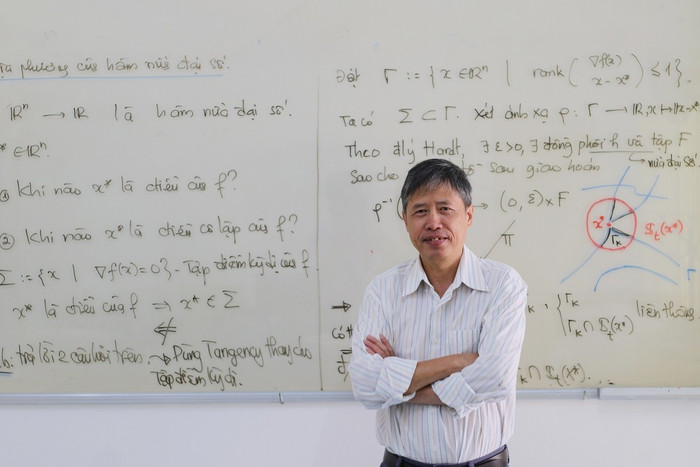 địa phương của hàm nửa đại số.
ℝⁿ → ℝ là hàm nửa đại số.
x* ∈ ℝⁿ.
① Khi nào x* là điểm của f?
② Khi nào x* là điểm cô lập của f?
Σ := {x | ∇f(x)=0} - Tập điểm kỳ dị của f
x* là điểm của f ⇒ x* ∈ Σ
trả lời 2 câu hỏi trên → Dùng Tangency thay cho
Tập điểm kỳ dị.
Đặt Γ := {x ∈ ℝⁿ | rank(∇f(x) x - x*) ≤ 1}.
Ta có Σ ⊂ Γ. Xét ánh xạ ρ: Γ → ℝ, x ↦ ‖x - x*‖
Theo đlý Hardt, ∃ ε>0, ∃ đồng phôi h và tập F
nửa đại số
sao cho sau giao hoán
ρ⁻¹ → (0, ε) × F
π
x*
Γₖ
𝕊ₜ(x*)
Γₖ liên thông
Γₖ ∩ 𝕊ₜ(x*)
Có
∩ 𝕊ₜ(x*). ...